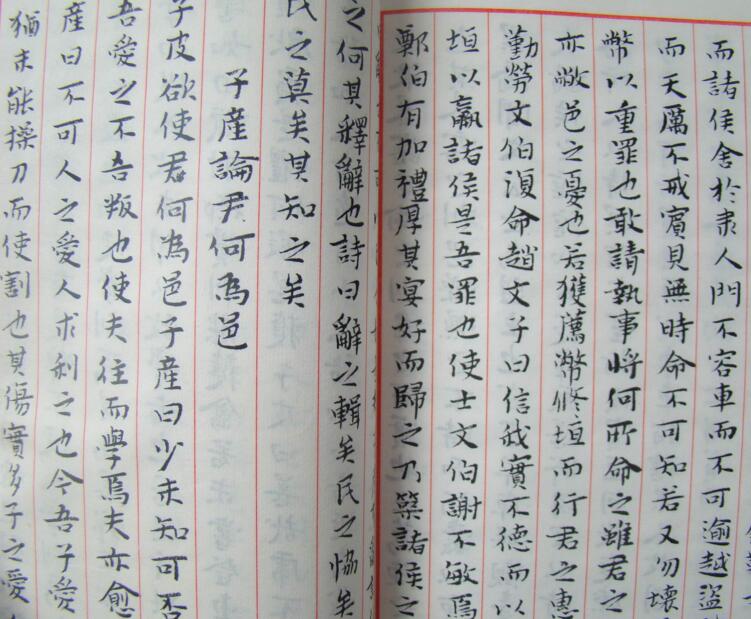 而諸侯舍於隶人門不容車而不可逾越盜
而天厲不戒賓見無時命不可知若又勿壞
幣以重罪也敢請執事將何所命之雖君之
亦敝邑之憂也若獲薦幣修垣而行君之惠
勤勞文伯復命趙文子曰信我實不德而以
垣以贏諸侯是吾罪也使士文伯謝不敏焉
鄭伯有加禮厚其宴好而歸之乃築諸侯之
之何其釋辭也詩曰辭之輯矣民之協矣
民之莫矣其知之矣
子產論尹何為邑
子皮欲使君何為邑子產曰少未知可否
吾愛之不吾叛也使夫往而學焉夫亦愈
產曰不可人之愛人求利之也今吾子愛
猶未能操刀而使割也其傷實多子之愛